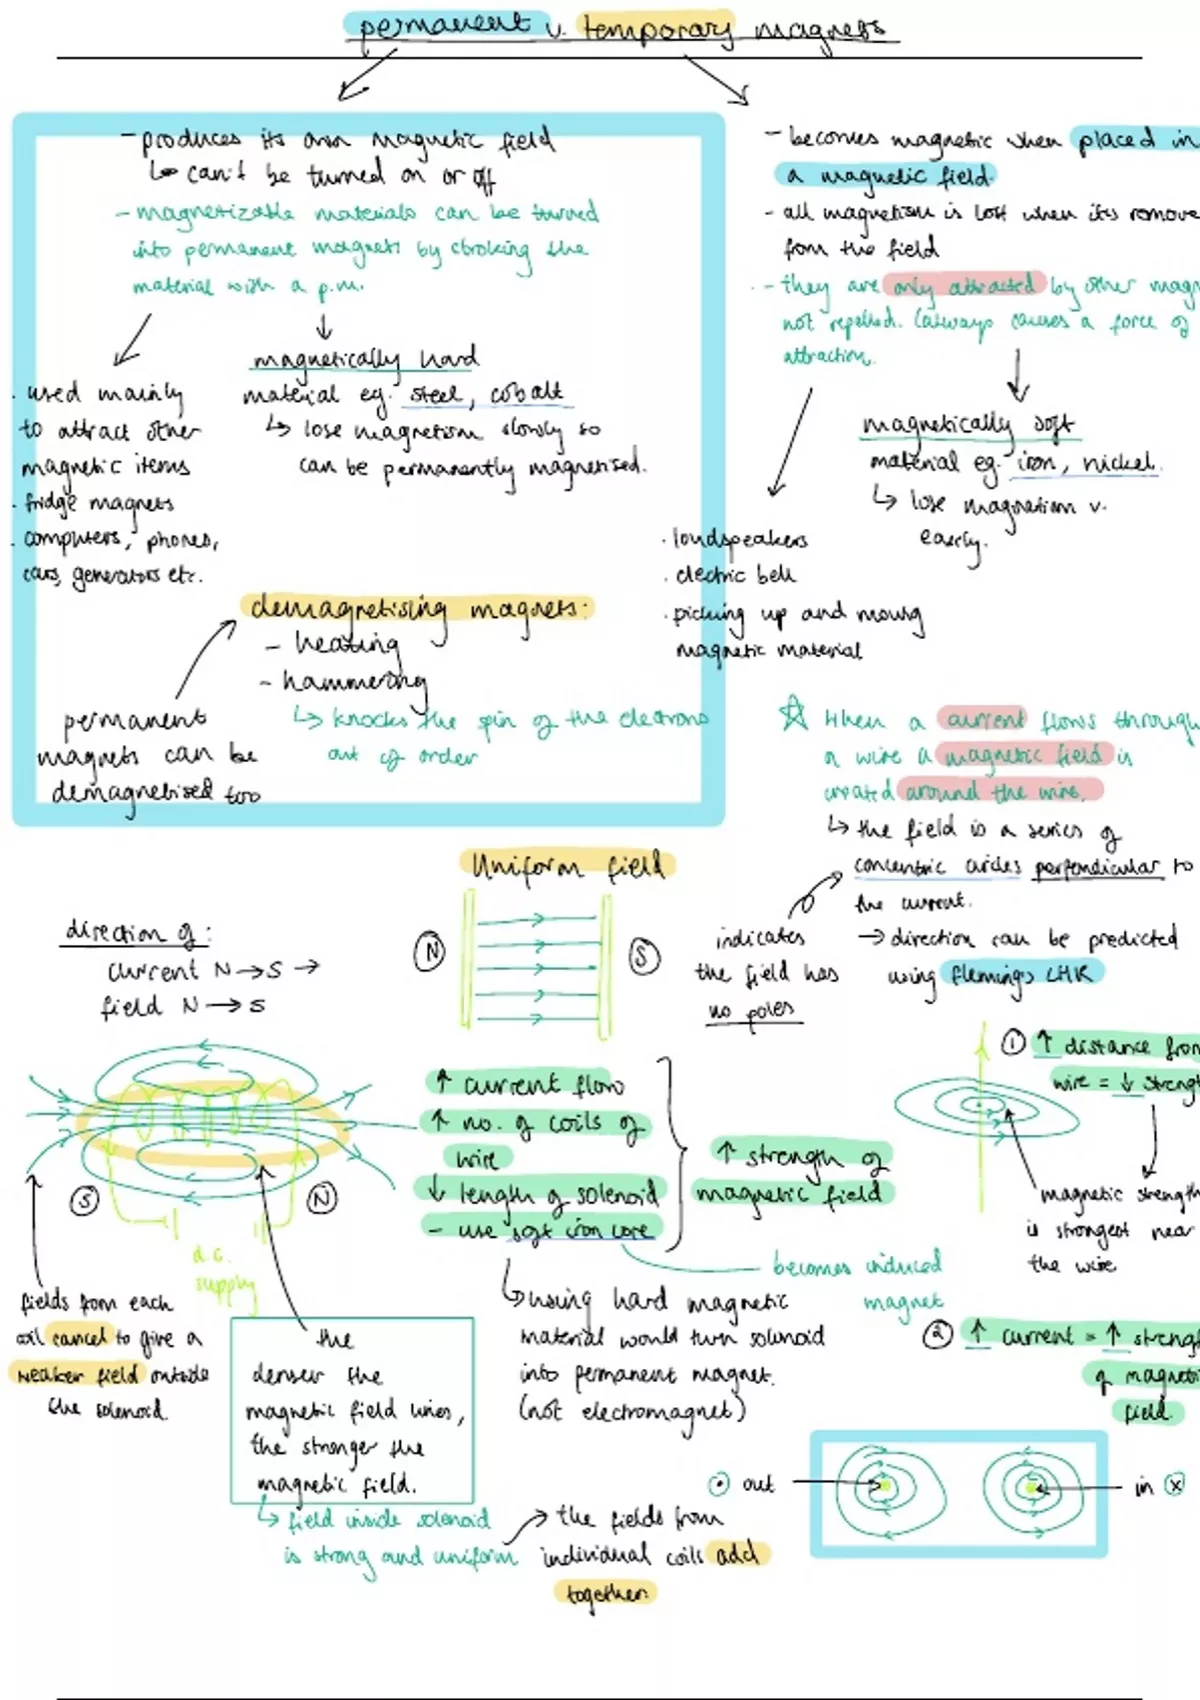 permanent v. temporary magnets
- produces its own magnetic field
↳ can't be turned on or off
- magnetizable materials can be turned
into permanent magnets by stroking the
material with a p.m.
· used mainly
to attract other
magnetic items
· fridge magnets
· computers, phones,
cars, generators etc.
magnetically hard
material eg. steel, cobalt
↳ lose magnetism slowly so
can be permanently magnetised.
demagnetising magnets:
- heating
- hammering
↳ knocks the spin of the electrons
out of order
permanent
magnets can be
demagnetised too
- becomes magnetic when placed in
a magnetic field.
- all magnetism is lost when its remove
from the field
- they are only attracted by other magn
not repelled. (always causes a force of
attraction.
magnetically soft
material eg. iron, nickel.
↳ lose magnetism v.
easily.
· loudspeakers
· electric bell
· picking up and moving
magnetic material
☆ When a current flows through
a wire a magnetic field is
created around the wire.
↳ the field is a series of
concentric circles perpendicular to
the current.
→ direction can be predicted
using flemings LHR
indicates
the field has
no poles
Uniform field
N
S
direction of:
current N → S →
field N → S
S
N
d.c.
supply
↑ current flow
↑ no. of coils of
wire
↓ length of solenoid
- use soft iron core
↑ strength of
magnetic field
becomes induced
magnet
↳ using hard magnetic
material would turn solenoid
into permanent magnet.
(not electromagnet)
fields from each
coil cancel to give a
weaker field outside
the solenoid.
the
denser the
magnetic field lines,
the stronger the
magnetic field.
↳ field inside solenoid
is strong and uniform
→ the fields from
individual coils add
together.
① ↑ distance from
wire = ↓ strength
magnetic strength
is strongest near
the wire
② ↑ current = ↑ strength
of magneti
field.
⊙ out
in ⊗